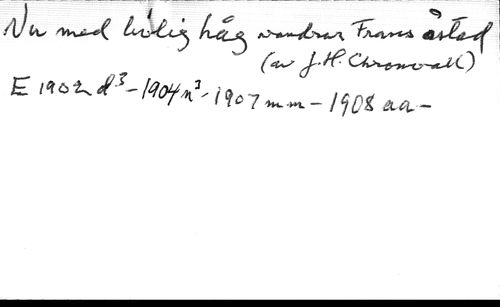 Nu med livlig håg vandrar Frans åstad
(av J. H. Chronwall)
E 1902 d³ - 1904 n³ - 1907 mm - 1908 aa -